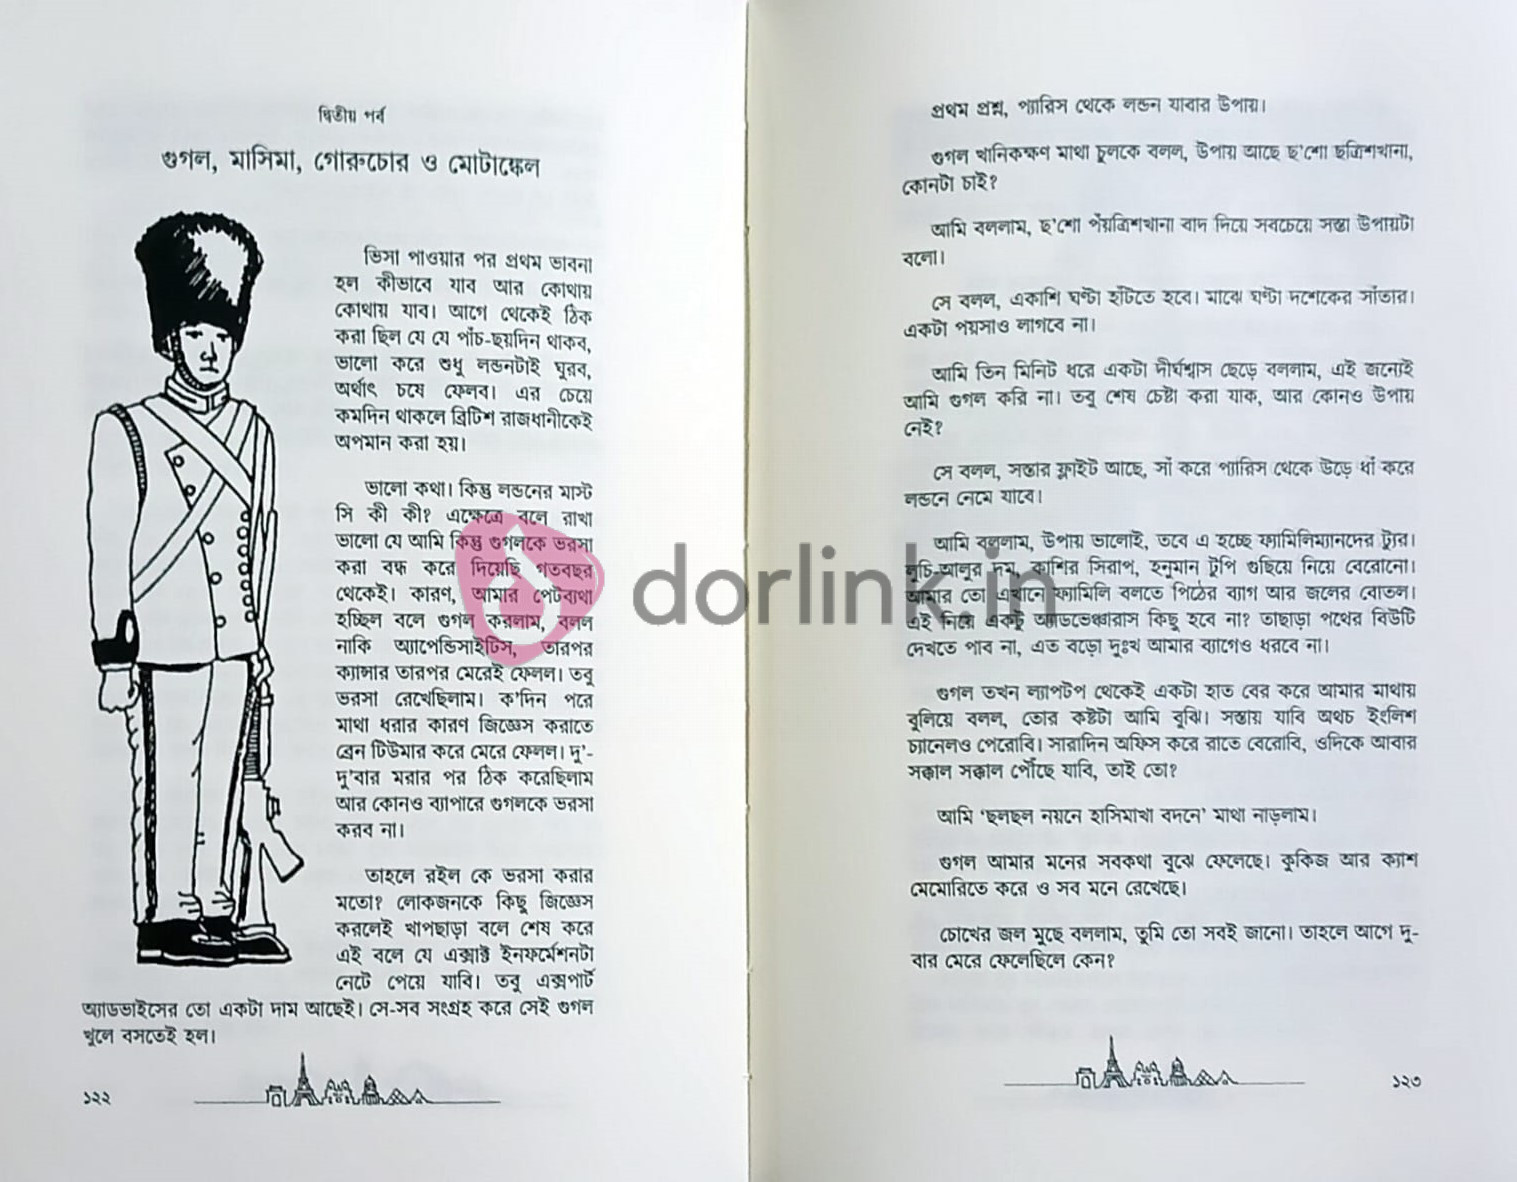 দ্বিতীয় পর্ব
গুগল, মাসিমা, গোরুচোর ও মোটাঙ্কেল
ভিসা পাওয়ার পর প্রথম ভাবনা
হল কীভাবে যাব আর কোথায়
কোথায় যাব। আগে থেকেই ঠিক
করা ছিল যে যে পাঁচ-ছয়দিন থাকব,
ভালো করে শুধু লন্ডনটাই ঘুরব,
অর্থাৎ চষে ফেলব। এর চেয়ে
কমদিন থাকলে ব্রিটিশ রাজধানীকেই
অপমান করা হয়।
ভালো কথা। কিন্তু লন্ডনের মাস্ট
সি কী কী? এক্ষেত্রে বলে রাখা
ভালো যে আমি কিন্তু গুগলকে ভরসা
করা বন্ধ করে দিয়েছি গতবছর
থেকেই। কারণ, আমার পেটব্যথা
হচ্ছিল বলে গুগল করলাম, বলল
নাকি অ্যাপেন্ডিসাইটিস, তারপর
ক্যান্সার তারপর মেরেই ফেলল। তবু
ভরসা রেখেছিলাম। ক'দিন পরে
মাথা ধরার কারণ জিজ্ঞেস করাতে
ব্রেন টিউমার করে মেরে ফেলল। দু'-
দু'বার মরার পর ঠিক করেছিলাম
আর কোনও ব্যাপারে গুগলকে ভরসা
করব না।
তাহলে রইল কে ভরসা করার
মতো? লোকজনকে কিছু জিজ্ঞেস
করলেই খাপছাড়া বলে শেষ করে
এই বলে যে এক্সাক্ট ইনফর্মেশনটা
নেটে পেয়ে যাবি। তবু এক্সপার্ট
অ্যাডভাইসের তো একটা দাম আছেই। সে-সব সংগ্রহ করে সেই গুগল
খুলে বসতেই হল।
১২২
প্রথম প্রশ্ন, প্যারিস থেকে লন্ডন যাবার উপায়।
গুগল খানিকক্ষণ মাথা চুলকে বলল, উপায় আছে ছ'শো ছত্রিশখানা,
কোনটা চাই?
আমি বললাম, ছ'শো পঁয়ত্রিশখানা বাদ দিয়ে সবচেয়ে সস্তা উপায়টা
বলো।
সে বলল, একাশি ঘণ্টা হাঁটতে হবে। মাঝে ঘণ্টা দশেকের সাঁতার।
একটা পয়সাও লাগবে না।
আমি তিন মিনিট ধরে একটা দীর্ঘশ্বাস ছেড়ে বললাম, এই জন্যেই
আমি গুগল করি না। তবু শেষ চেষ্টা করা যাক, আর কোনও উপায়
নেই?
সে বলল, সস্তার ফ্লাইট আছে, সাঁ করে প্যারিস থেকে উড়ে ধাঁ করে
লন্ডনে নেমে যাবে।
আমি বললাম, উপায় ভালোই, তবে এ হচ্ছে ফ্যামিলিম্যানদের ট্যুর।
লুচি-আলুর দম, কাশির সিরাপ, হনুমান টুপি গুছিয়ে নিয়ে বেরোনো।
আমার তো এখানে ফ্যামিলি বলতে পিঠের ব্যাগ আর জলের বোতল।
এই নিয়ে একটু অ্যাডভেঞ্চারাস কিছু হবে না? তাছাড়া পথের বিউটি
দেখতে পাব না, এত বড়ো দুঃখ আমার ব্যাগেও ধরবে না।
গুগল তখন ল্যাপটপ থেকেই একটা হাত বের করে আমার মাথায়
বুলিয়ে বলল, তোর কষ্টটা আমি বুঝি। সস্তায় যাবি অথচ ইংলিশ
চ্যানেলও পেরোবি। সারাদিন অফিস করে রাতে বেরোবি, ওদিকে আবার
সক্কাল সক্কাল পৌঁছে যাবি, তাই তো?
আমি 'ছলছল নয়নে হাসিমাখা বদনে' মাথা নাড়লাম।
গুগল আমার মনের সবকথা বুঝে ফেলেছে। কুকিজ আর ক্যাশ
মেমোরিতে করে ও সব মনে রেখেছে।
চোখের জল মুছে বললাম, তুমি তো সবই জানো। তাহলে আগে দু-
বার মেরে ফেলেছিলে কেন?
১২৩
dorlink.in